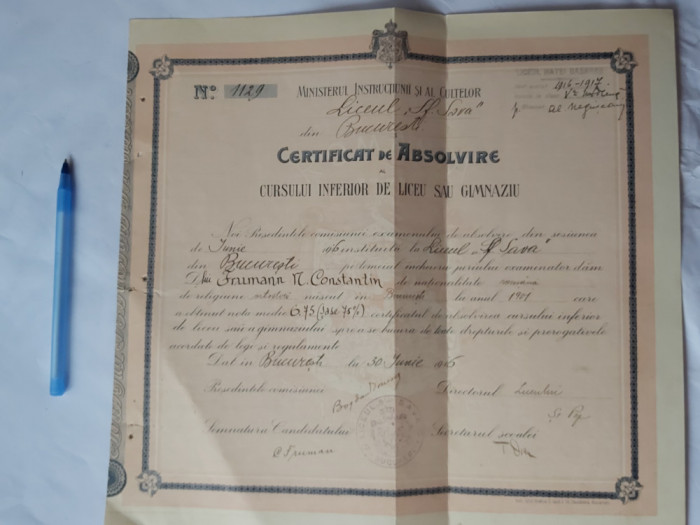 No. 1129
MINISTERUL INSTRUCȚIUNII ȘI AL CULTELOR
1916-1917
Liceul „Sf. Sava"
din București
CERTIFICAT DE ABSOLVIRE
AL
CURSULUI INFERIOR DE LICEU SAU GIMNAZIU
Noi Președintele comisiunii examenului de absolvire, din sesiunea
de Iunie 916 instituită la Liceul „Sf Sava"
din București pe temeiul mediilor juriului examinator dăm
D lui Frumann N. Constantin de naționalitate româna
de religiune născut în București la anul 1901 care
a obținut nota medie 6.75 (șase 75%) certificatul de absolvirea cursului inferior
de liceu sau a gimnaziului spre a se bucura de toate drepturile și prerogativele
acordate de legi și regulamente
Dat în București la 30 Iunie 916
Președintele comisiunii Directorul Liceului
Semnătura Candidatului Secretarul școalei
C Fruman